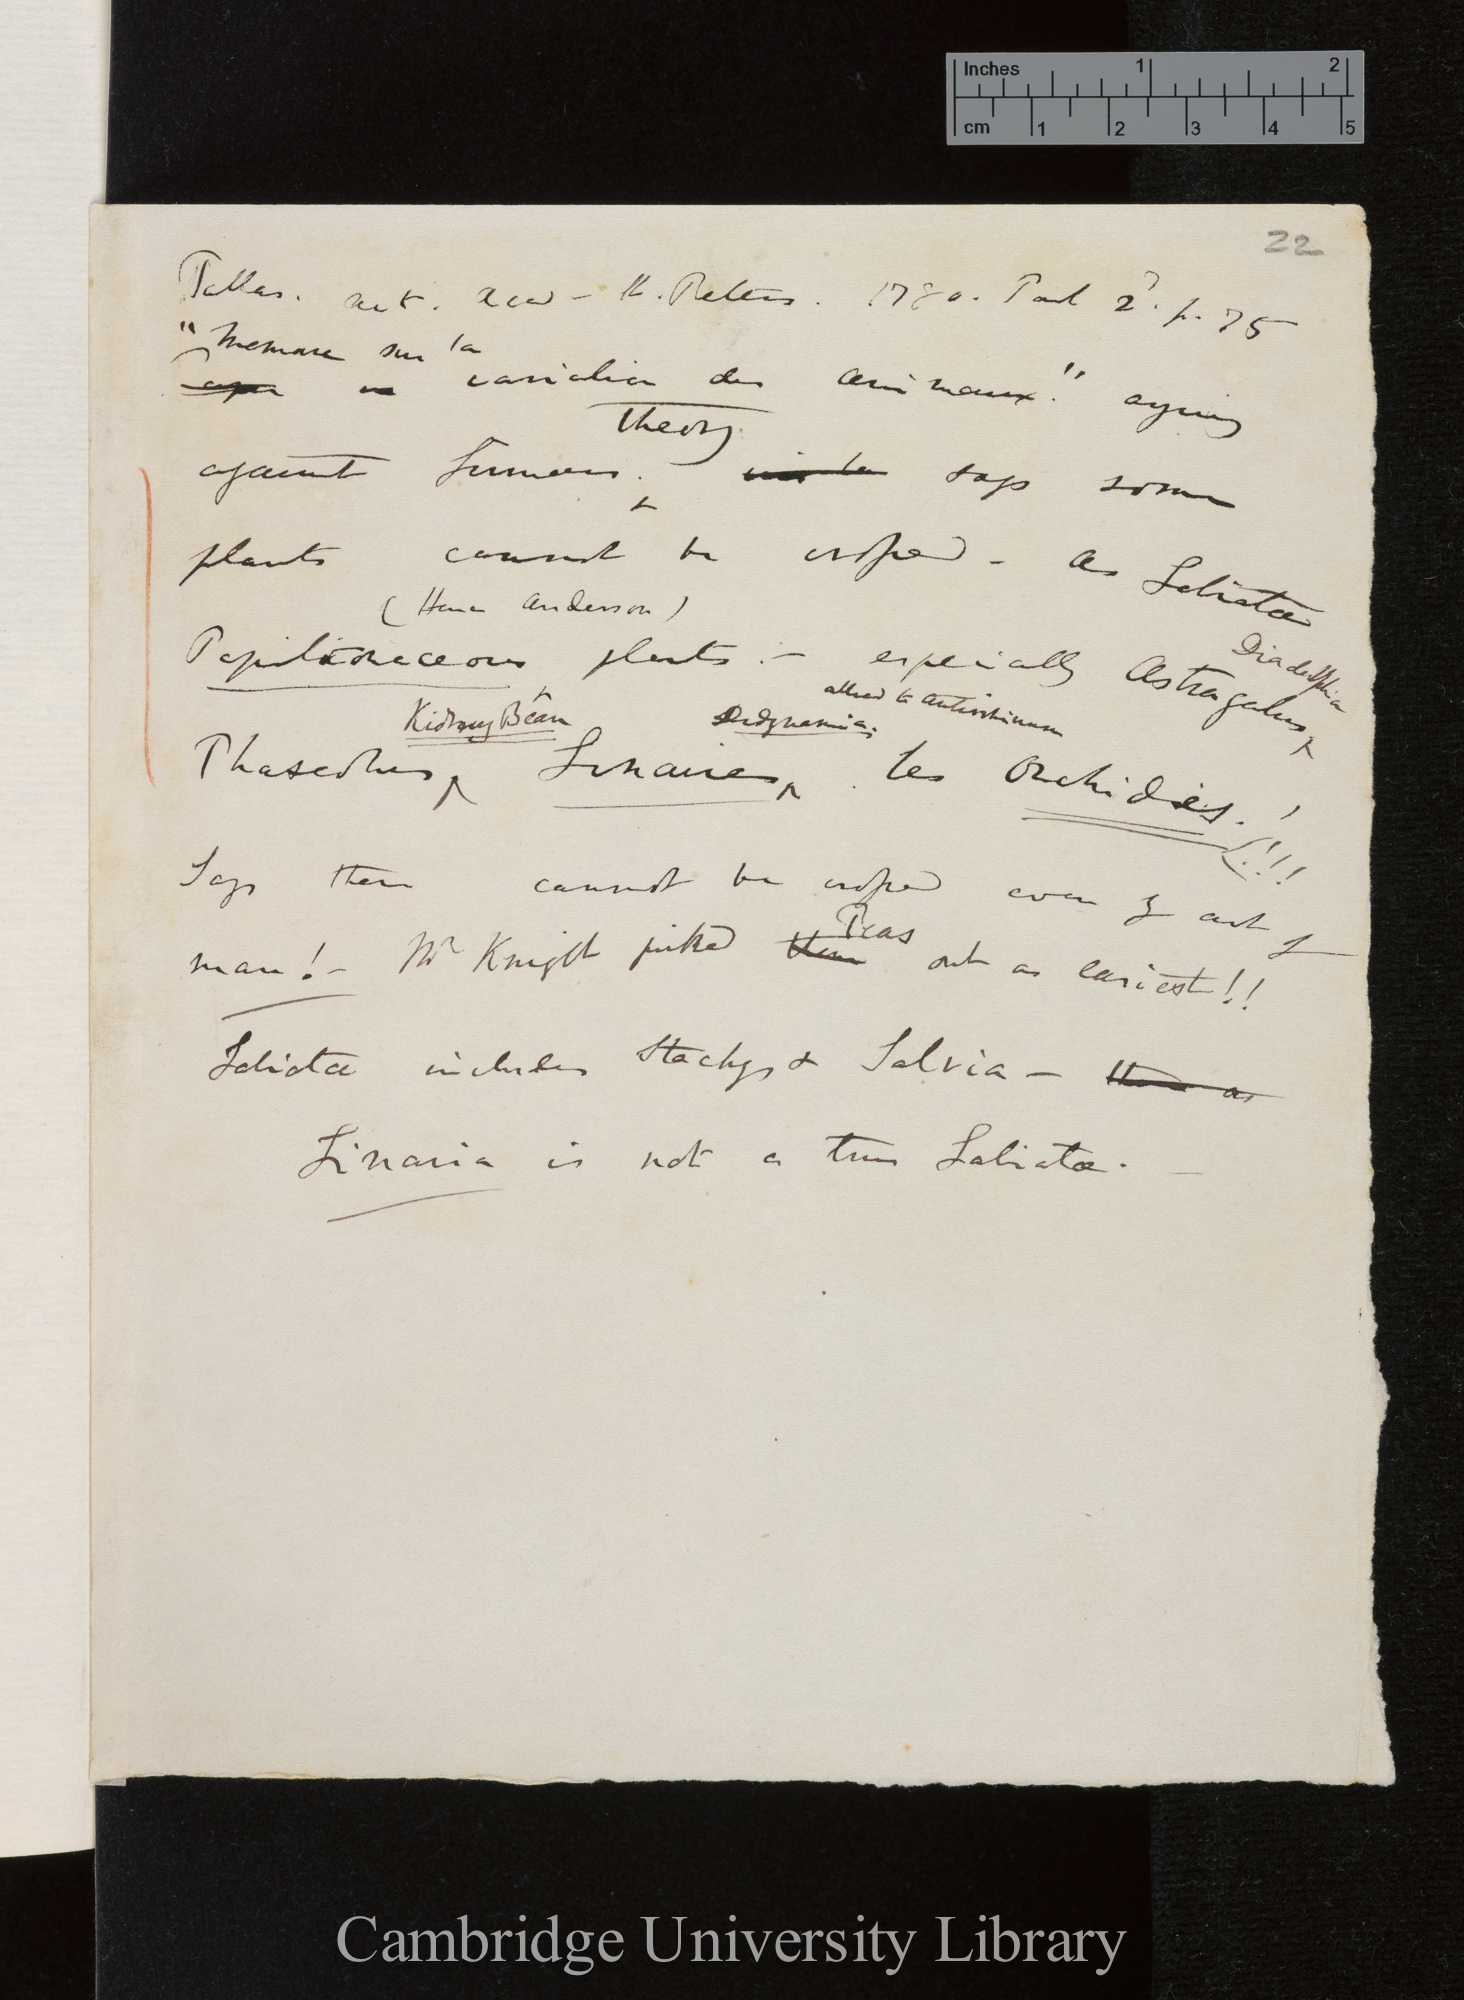 Inches 1 2
cm 1 2 3 4 5
22
Pallas. Act. Acad – St. Peters. 1780. Part 2d. p. 75
"Memoire sur la
variation des animaux." arguing
Theory
against Linnæus. says some
+
plants cannot be crossed – as Labiatæ
(Hence Anderson)
Papilionaceous plants. – especially Astragalus,
Diadelphia
Kidney Bean Didynamia, allied to Antirrhinum
Phaseolus, Linaires, les Orchidées. !
(!!!
Says these cannot be crossed even by art of
Peas
man! – Mr Knight picked them out as easiest!!
Labiatæ includes Stachys & Salvia – these as
Linaria is not a true Labiatæ. –
Cambridge University Library